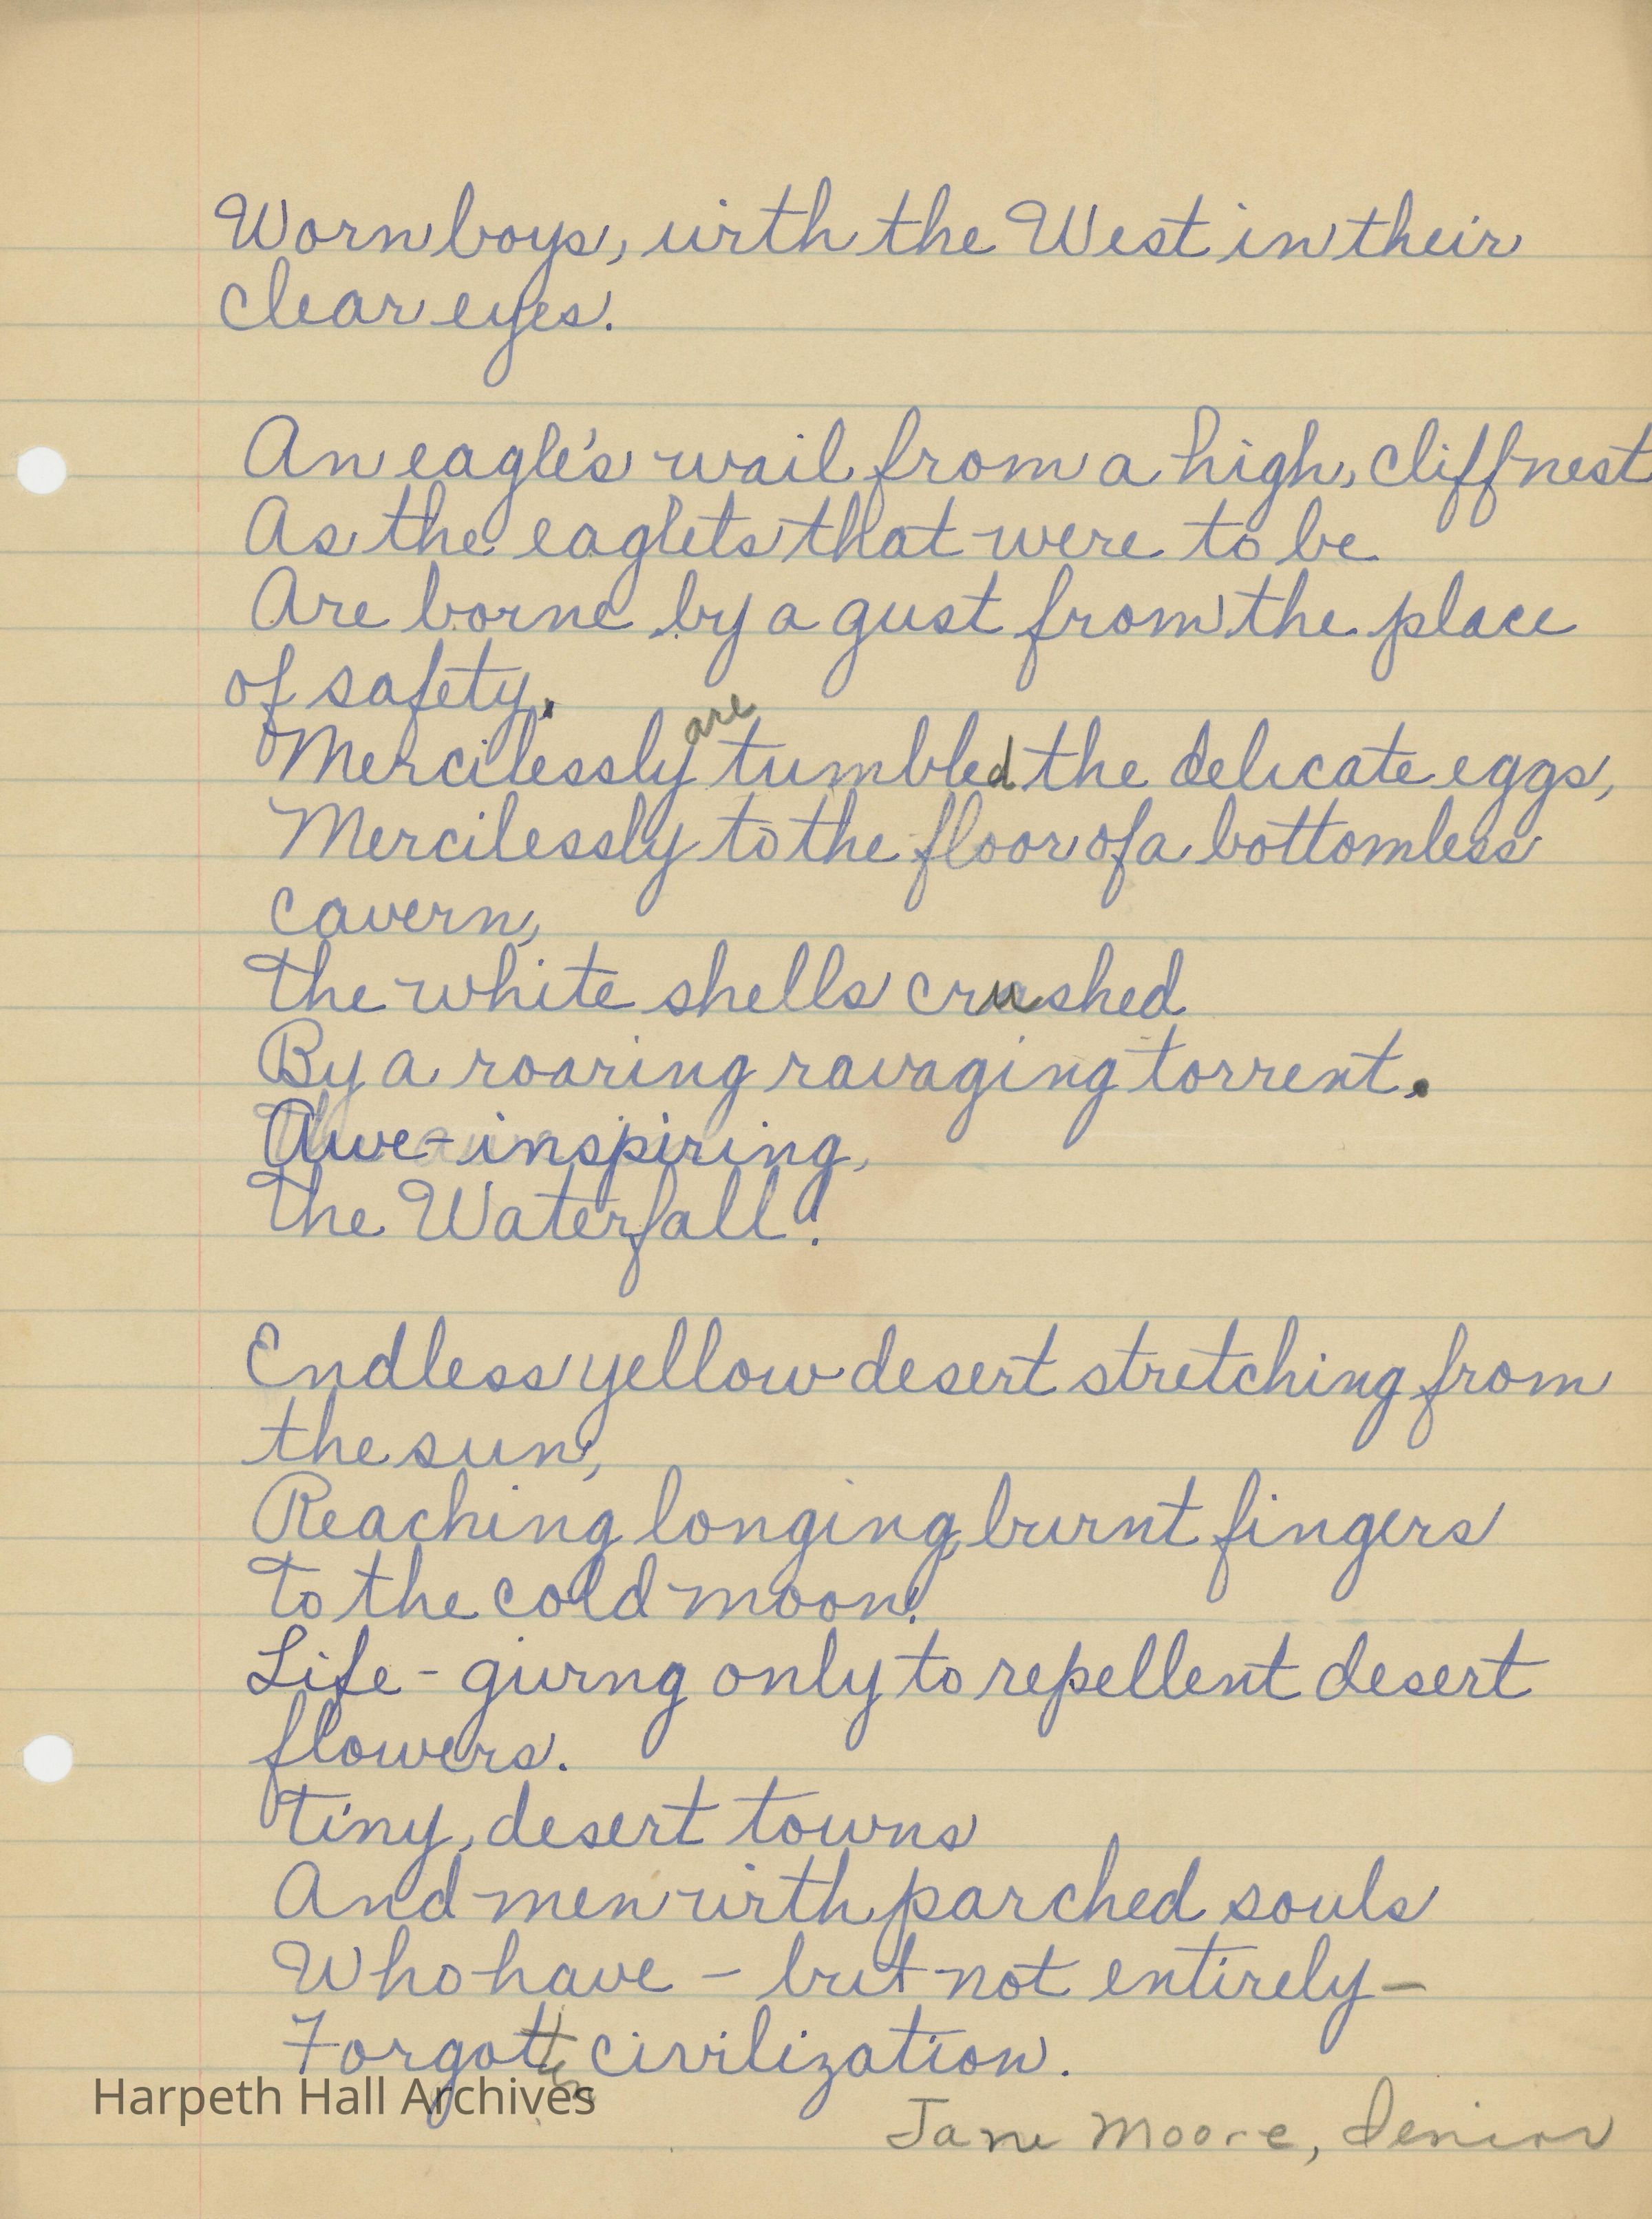 Worn boys, with the West in their
clear eyes.
An eagle's wail from a high, cliff nest
As the eaglets that were to be
Are borne by a gust from the place
of safety.
are
Mercilessly tumbled the delicate eggs,
Mercilessly to the floor of a bottomless
cavern,
The white shells crushed
By a roaring ravaging torrent.
Awe-inspiring,
The Waterfall!
Endless yellow desert stretching from
the sun,
Reaching longing, burnt fingers
To the cold moon!
Life-giving only to repellent desert
flowers.
Tiny, desert towns
And men with parched souls
Who have - but not entirely -
Forgotten civilization.
Harpeth Hall Archives
Jane Moore, Senior